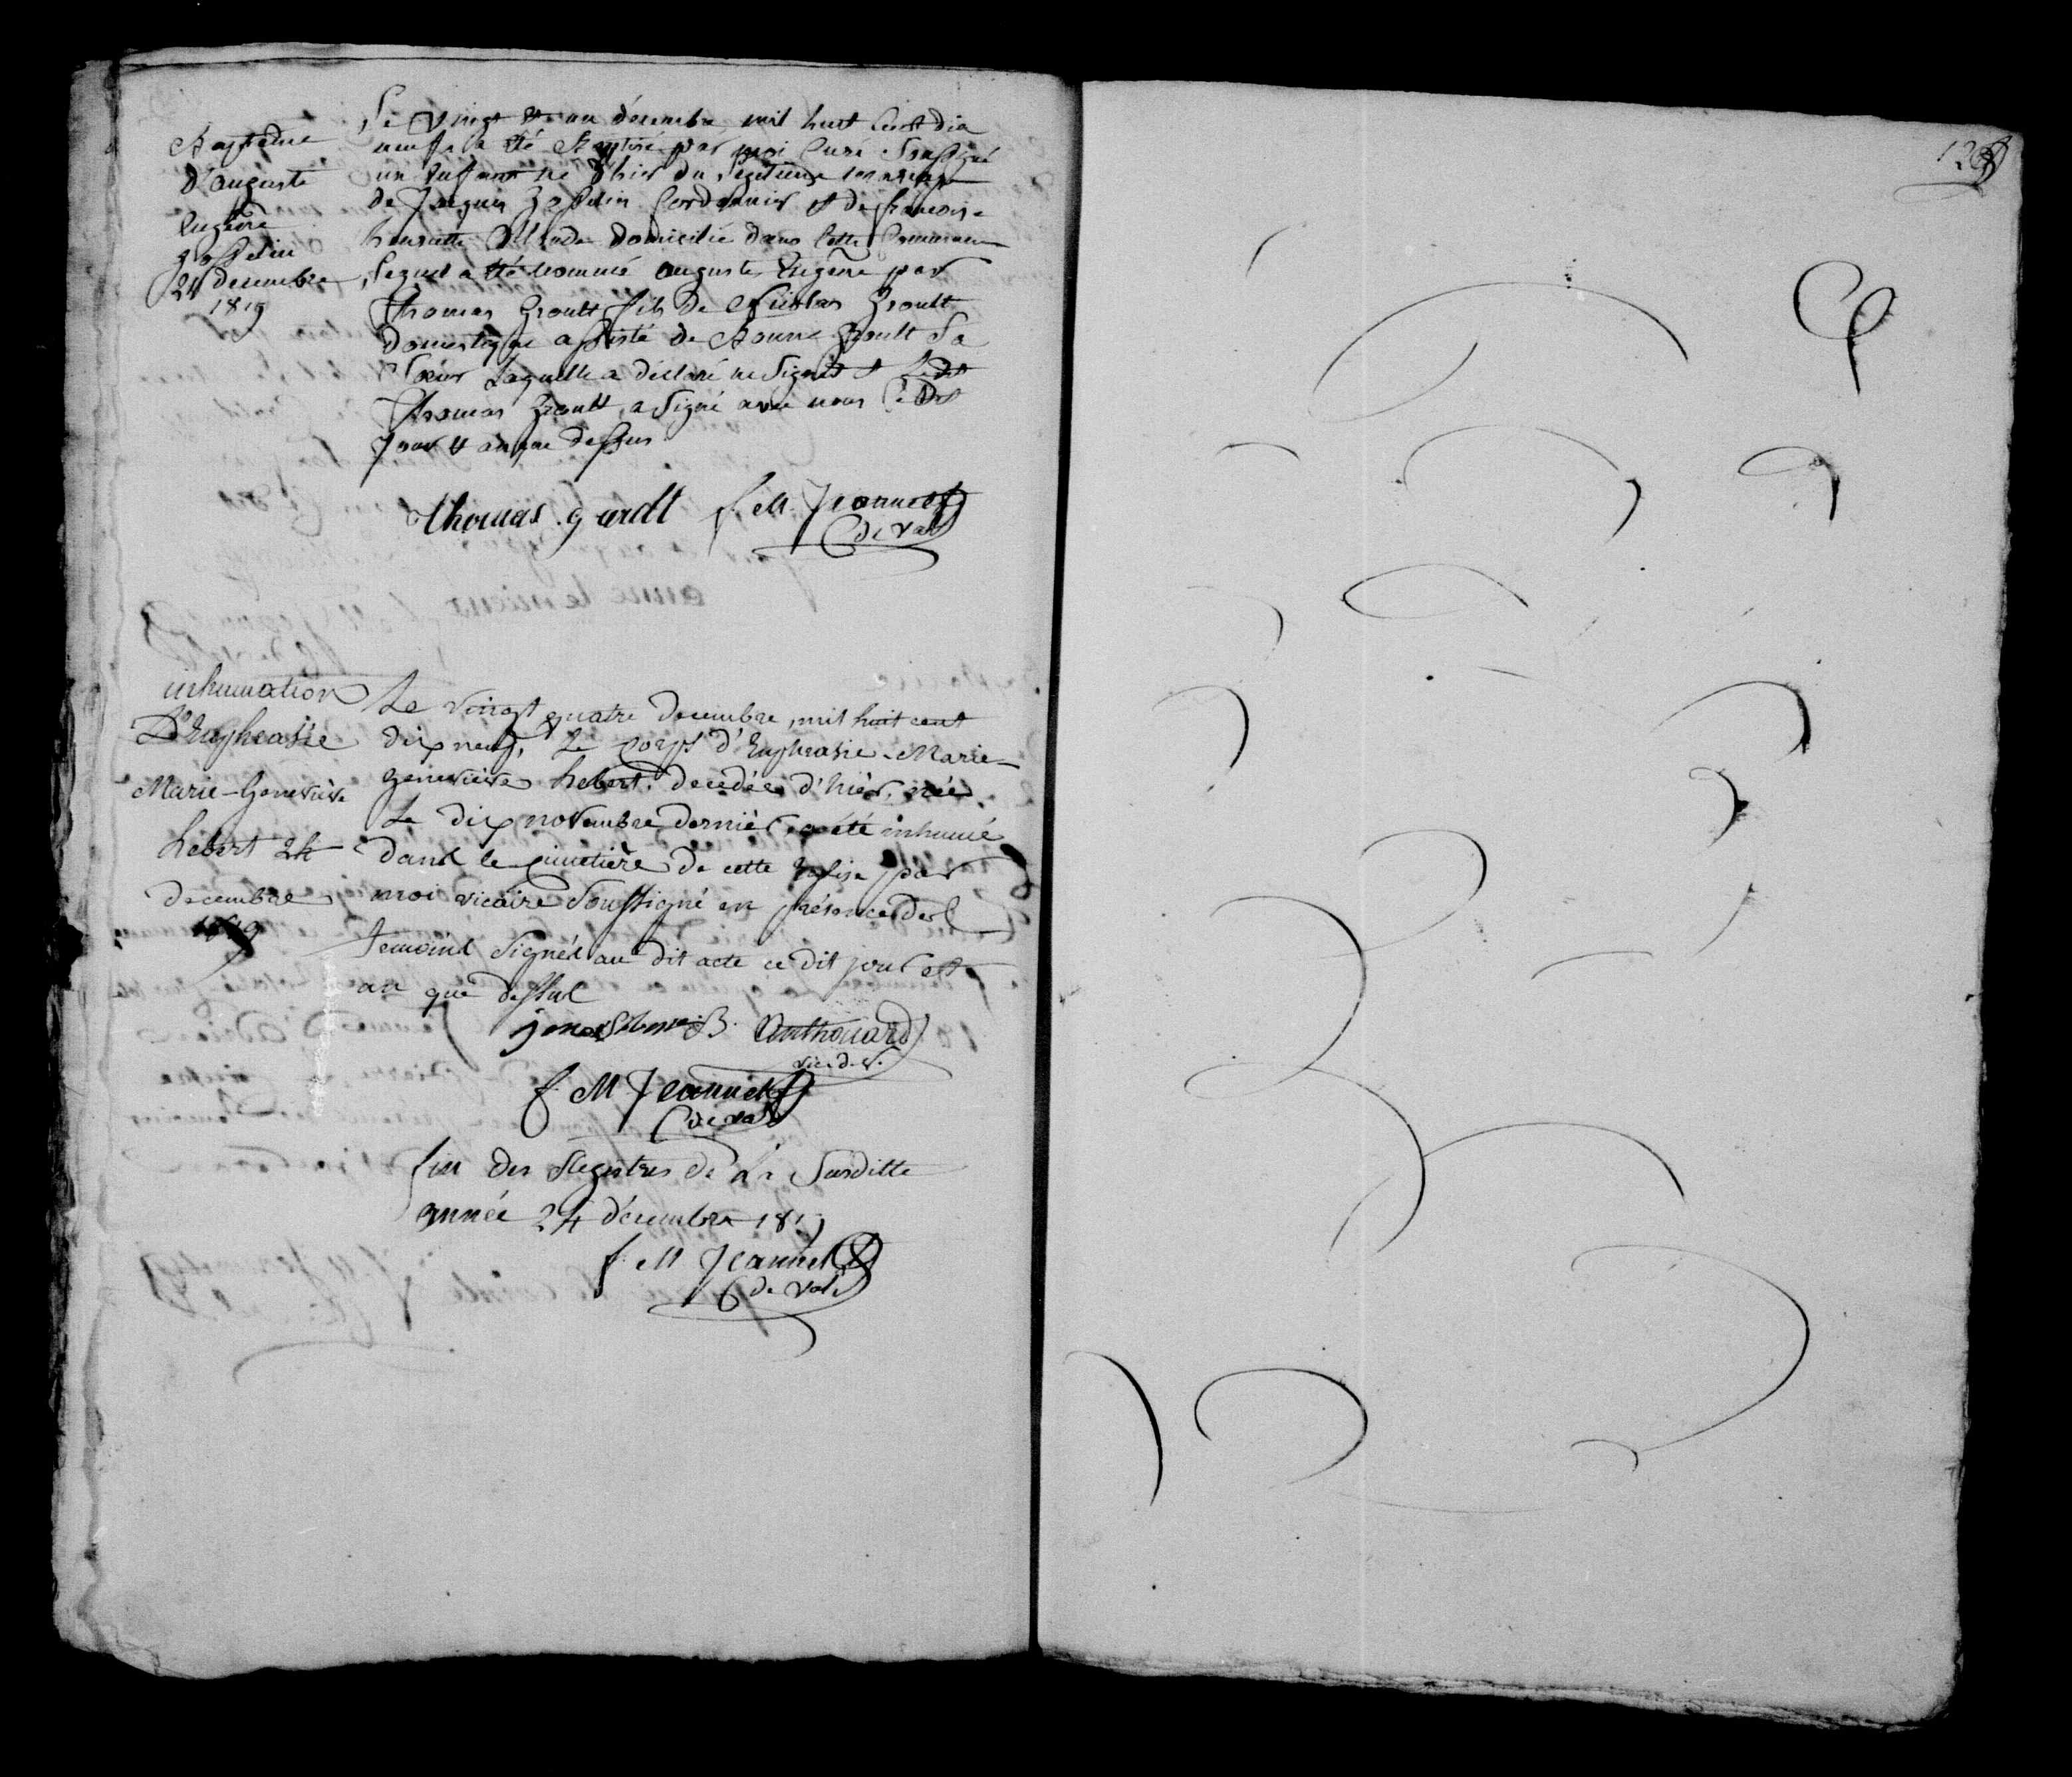 Baptême
d'auguste
Eugène
gosselin
21 decembre
1819
Le vingt et un décembre mil huit cent dix
neuf a été Baptisé par moi Curé Soussigné
un Enfant né d'hier du légitime mariage
de Jacques Gosselin Cordonnier et de francoise
henriette domicilié dans cette Commune
lequel a été nommé auguste Eugène par
Thomas Groult fils de Nicolas Groult
domestique assisté de Anne Groult Sa
Soeur laquelle a déclaré ne Signer et Ledit
Thomas Groult a Signé avec nous Ce Dit
Jour et an que dessus
thomas groult f. M. Jeannet
C de val
inhumation
D'Euphrasie
Marie-Genevieve
hebert 24
decembre
1819
Le vingt quatre decembre, mil huit cent
dix neuf, Le corps d'Euphrasie-Marie-
genevieve hebert, decedée d'hier, née
Le dix novembre dernier, a été inhumé
dans le cimetière de cette Eglise par
moi vicaire Soussigné en présence des
temoins Signés au dit acte ce dit jour et
an que dessus
B. Anthouard
vic. d. v.
f. M Jeannet
C de val
fin des Registres de La Susditte
année 24 décembre 1819
f. M Jeannet
C de val